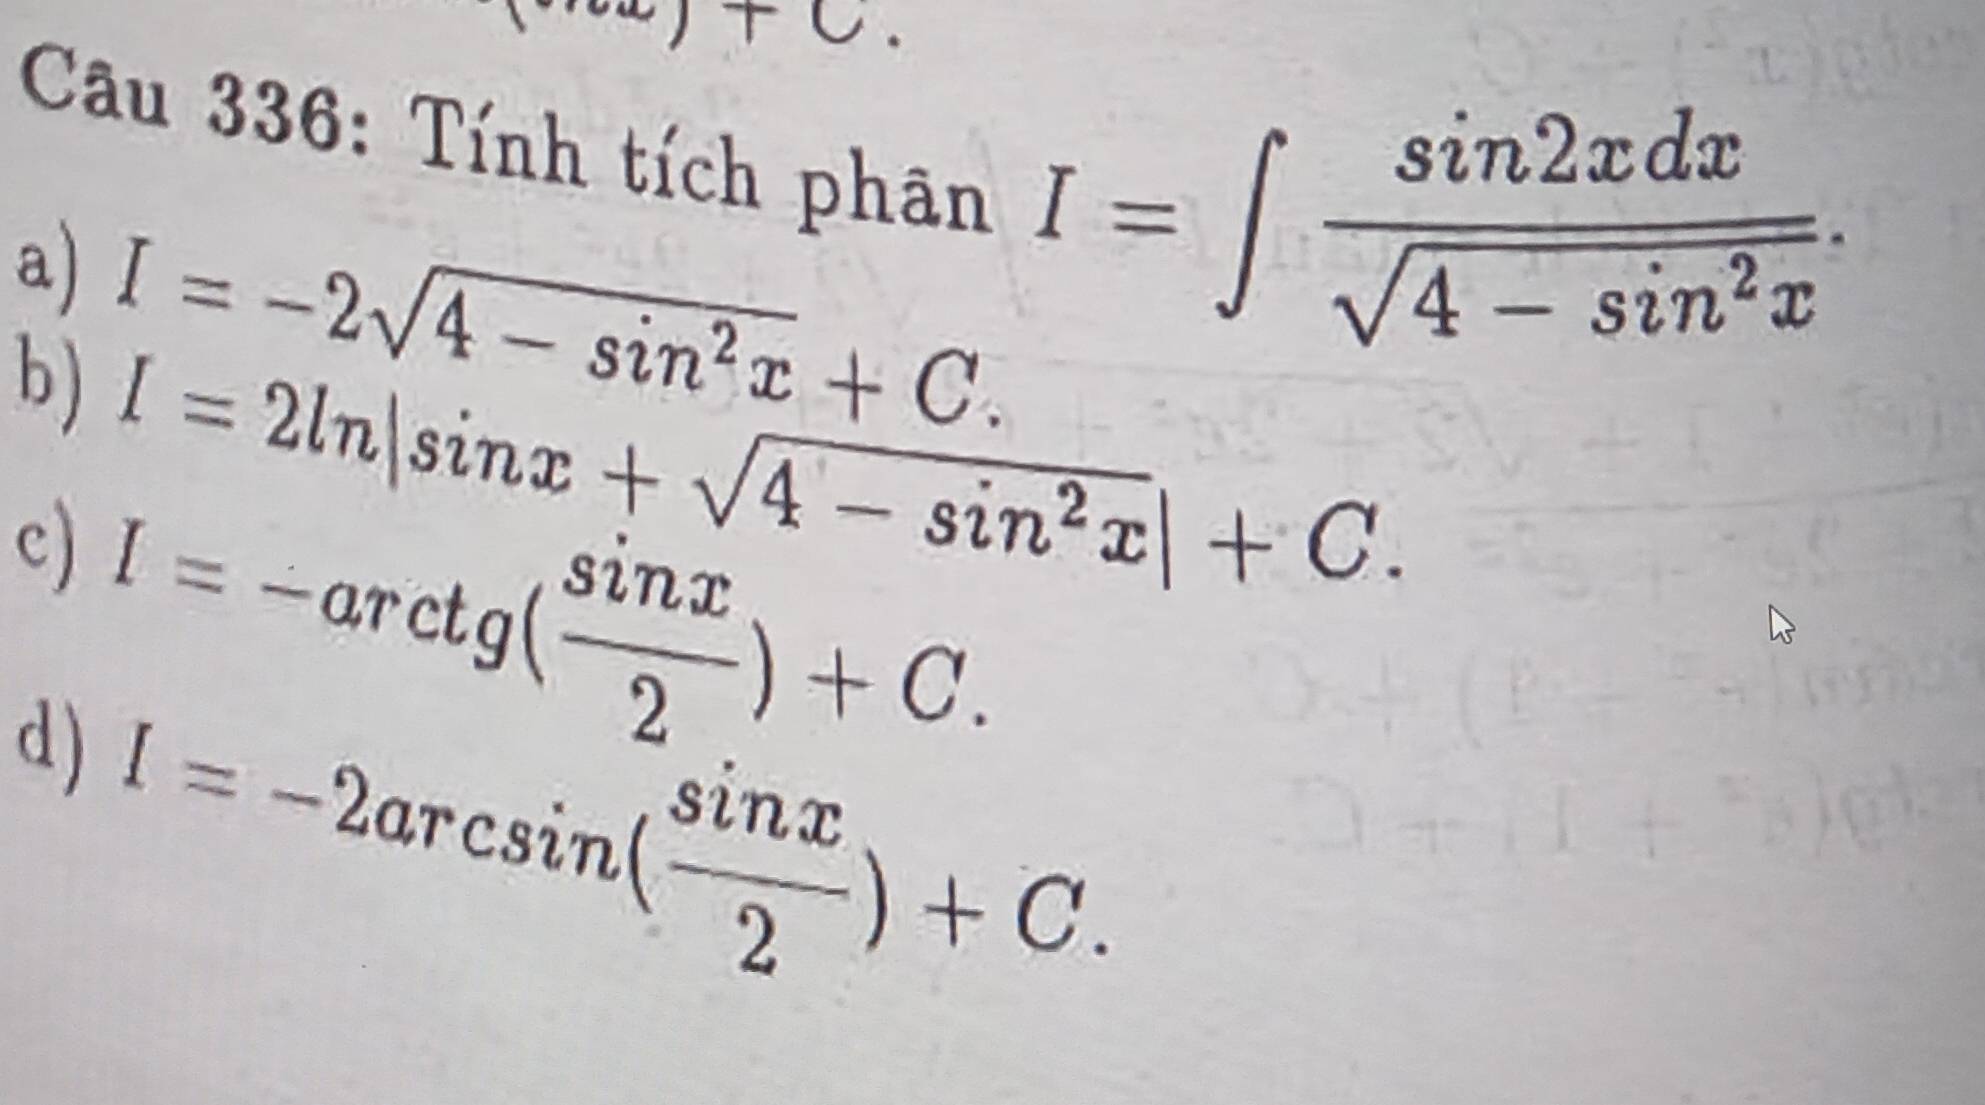 + C.
Câu 336: Tính tích phân I = ∫ sin2xdx / √(4 − sin²x).
a) I = −2√(4 − sin²x) + C.
b) I = 2ln|sinx + √(4 − sin²x)| + C.
c) I = −arctg(sinx/2) + C.
d) I = −2arcsin(sinx/2) + C.